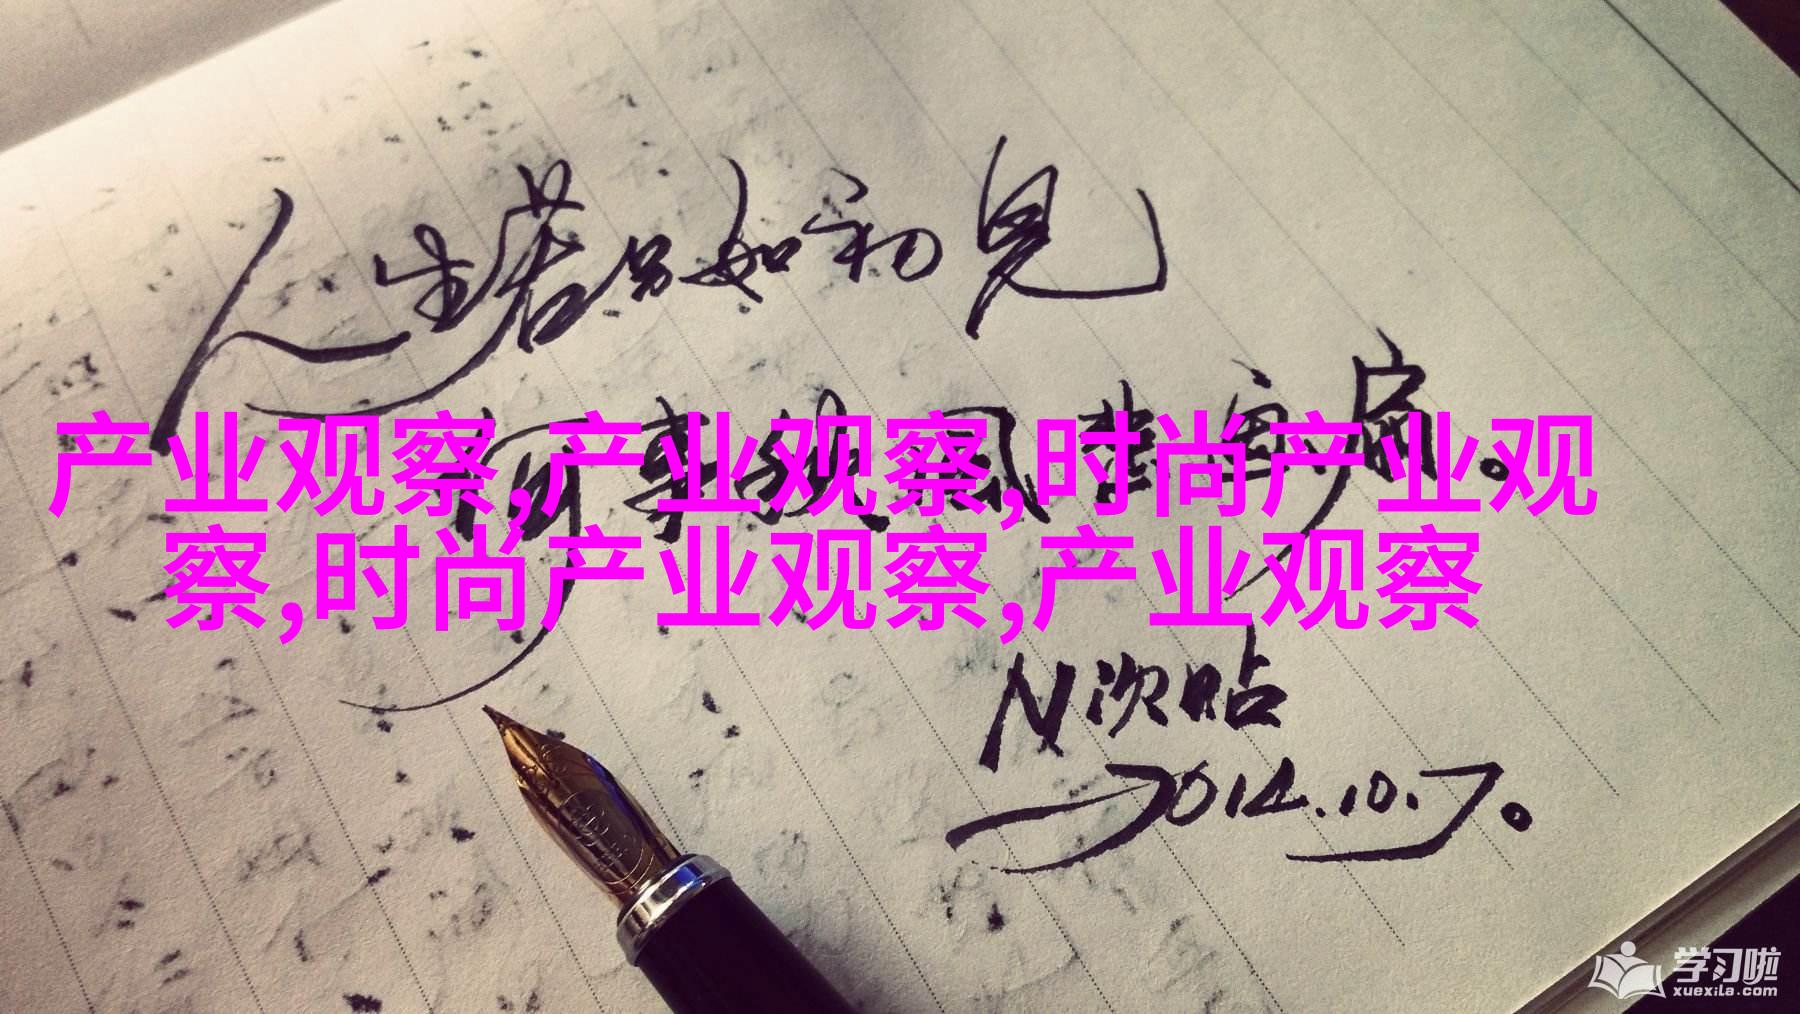 人生若只如初见
何事秋风悲画扇。
产业观察,产业观察,时尚产业观
察,时尚产业观察,产业观察
N次贴
2014.10.7。
学习啦
xuexila.com